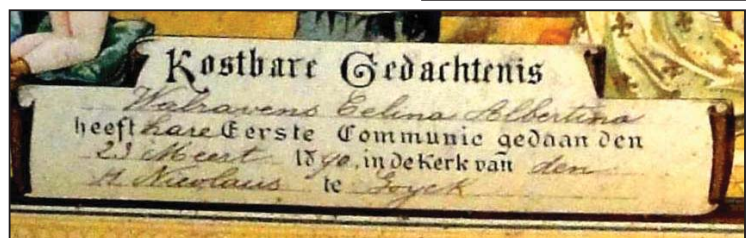 Kostbare Gedachtenis
Walravens Celina Albertina
heeft hare Eerste Communie gedaan den
23 Meert 1890, in de Kerk van den
H Nicolaus te Goyck